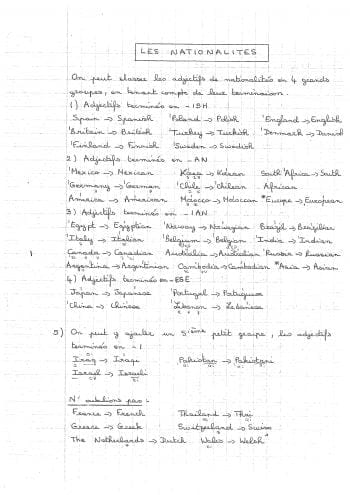 LES NATIONALITES
On peut classer les adjectifs de nationalités en 4 grands
groupes, en tenant compte de leur terminaison.
1) Adjectifs terminés en -ISH
'Spain → Spanish 'Poland → Polish 'England → English
'Britain → British 'Turkey → Turkish 'Denmark → Danish
'Finland → Finnish 'Sweden → Swedish
2) Adjectifs terminés en -AN
'Mexico → Mexican Korea → Korean South 'Africa → South
'Germany → 'German 'Chile → 'Chilean African
America → American Morocco → Moroccan *Europe → European
3) Adjectifs terminés en -IAN
'Egypt → Egyptian 'Norway → Norwegian Brazil → Brazilian
'Italy → Italian 'Belgium → Belgian 'India → Indian
Canada → Canadian Australia → Australian Russia → Russian
Argentina → Argentinian Cambodia → Cambodian *Asia → Asian
4) Adjectifs terminés en -ESE
Japan → Japanese 'Portugal → Portuguese
'China → Chinese 'Lebanon → Lebanese
5) On peut y ajouter un 5ième petit groupe, les adjectifs
terminés en -I
Iraq → Iraqi Pakistan → Pakistani
Israel → Israeli
N' oublions pas :
France → French Thailand → Thai
Greece → Greek Switzerland → Swiss
The Netherlands → Dutch Wales → Welsh